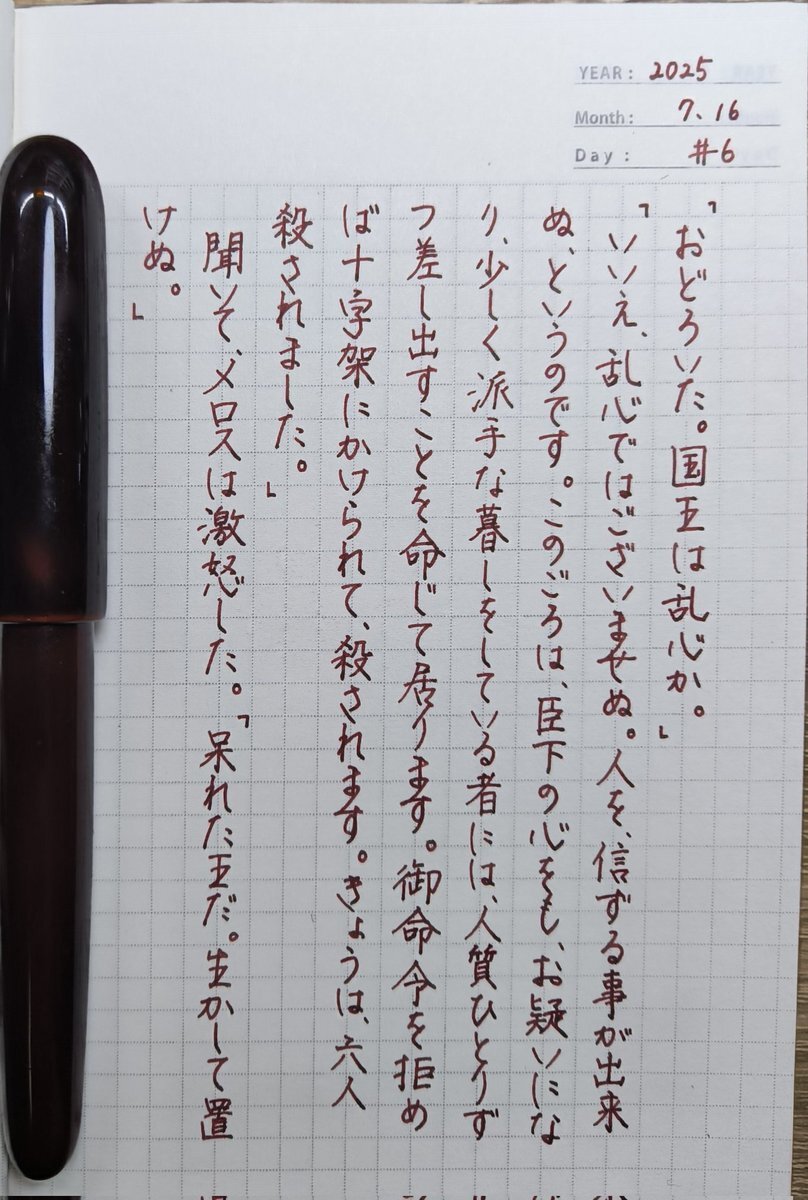 YEAR: 2025
Month: 7.16
Day: #6
「おどろいた。国王は乱心か。」
「いいえ、乱心ではございませぬ。人を、信ずる事が出来
ぬ、というのです。このごろは、臣下の心をも、お疑いにな
り、少しく派手な暮しをしている者には、人質ひとりず
つ差し出すことを命じて居ります。御命令を拒め
ば十字架にかけられて、殺されます。きょうは、六人
殺されました。」
聞いて、メロスは激怒した。「呆れた王だ。生かして置
けぬ。」